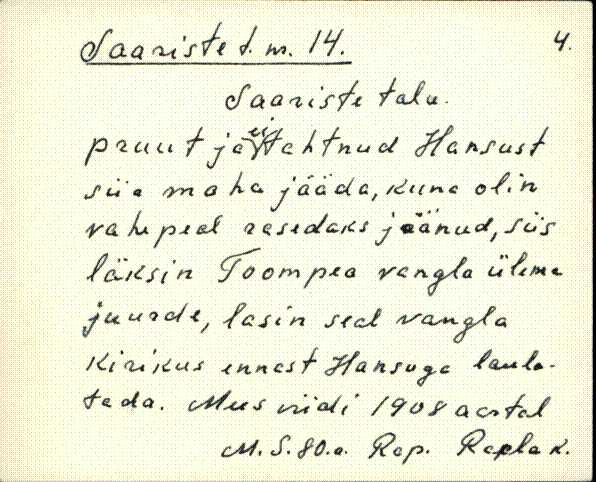 Saariste t. nr. 14. 4.
Saariste talu.
pruut ja ei tahtnud Hansust
siia maha jääda, kuna olin
vahepeal rasedaks jäänud, siis
läksin Toompea vangla ülema
juurde, lasin seal vangla
kirikus ennast Hansuga laula-
tada. Mees viidi 1908 aastal
M. S. 80.a. Rap. Rapla k.